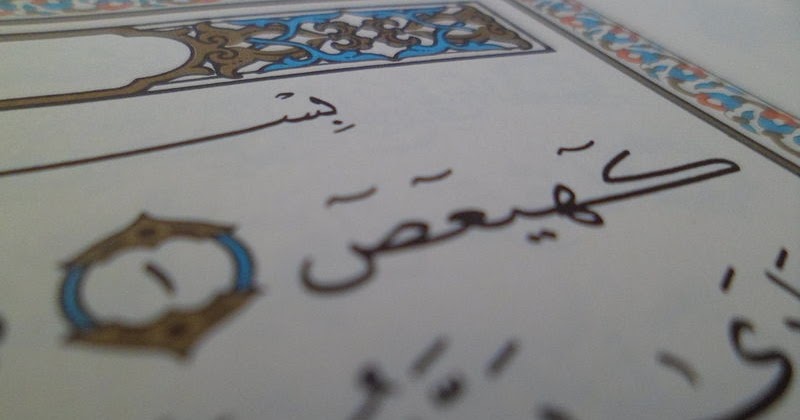 بِسْـ
كٓهيعٓصٓ ١